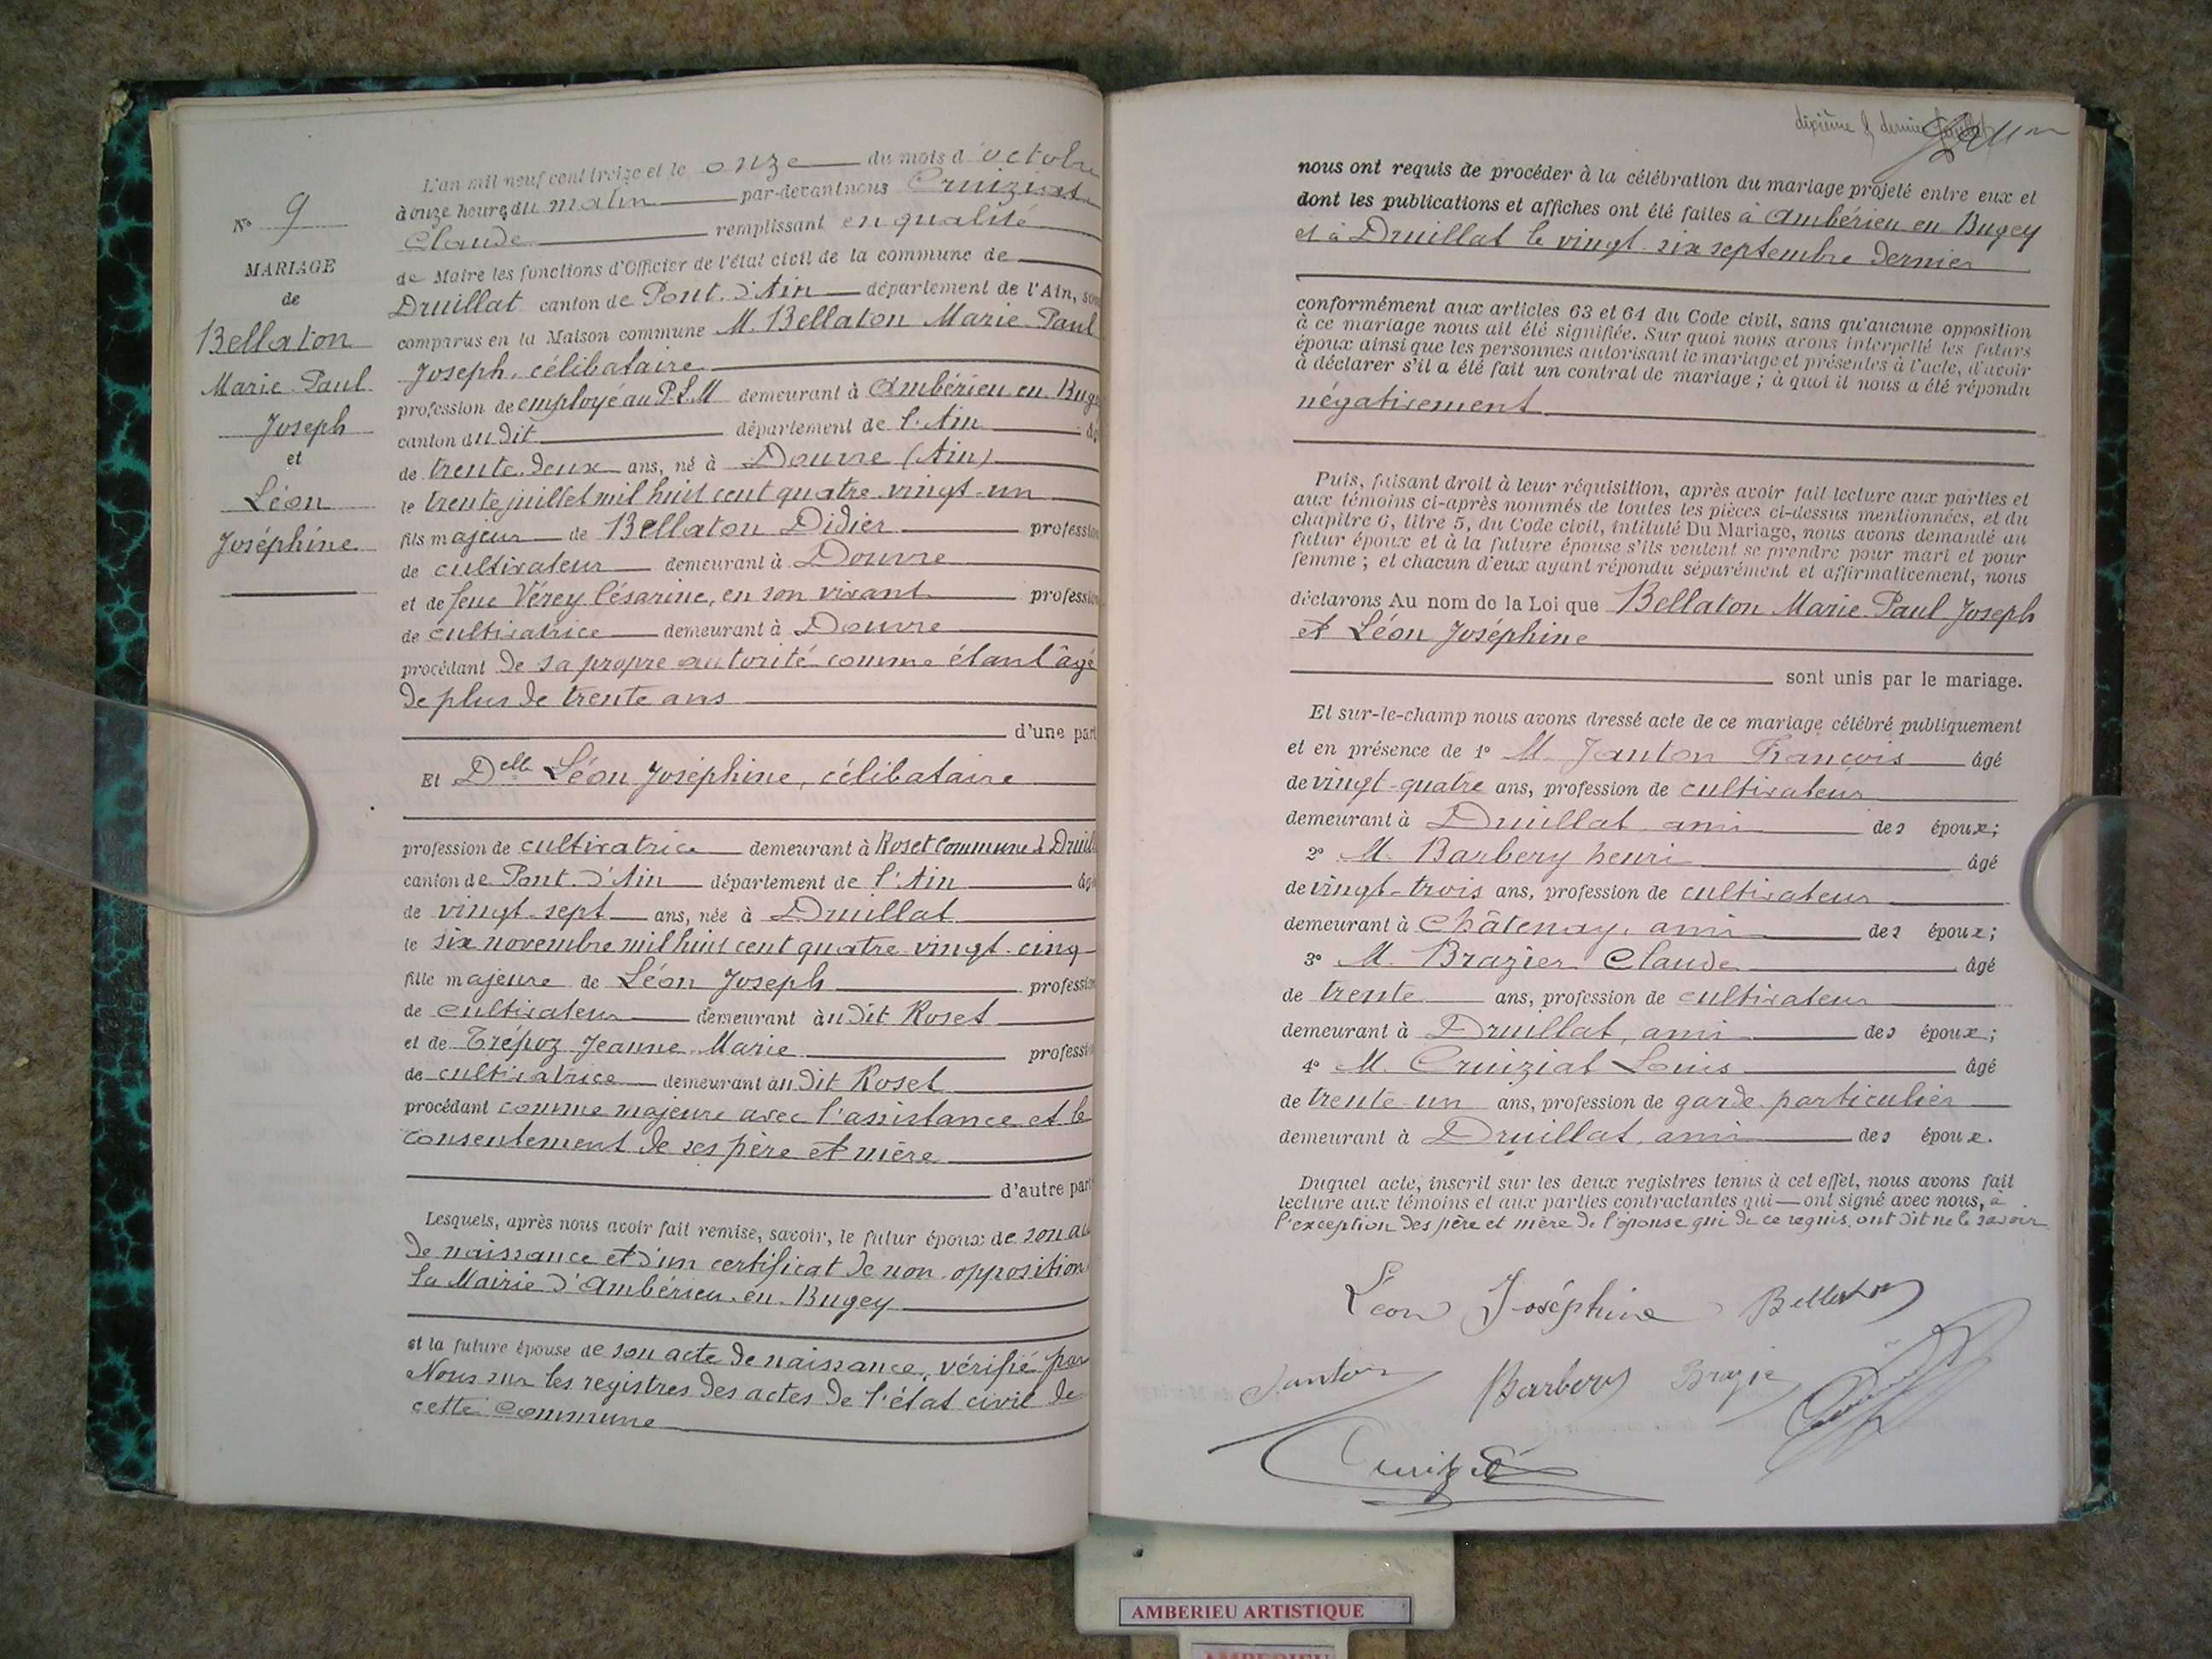 N° 9
MARIAGE
de
Bellaton
Marie Paul
Joseph
et
Léon
Joséphine
L'an mil neuf cent treize et le onze du mois d'octobre
à onze heures du matin par-devant nous Cruiziat
Claude remplissant en qualité
de Maire les fonctions d'Officier de l'état civil de la commune de
Druillat canton de Pont-d'Ain département de l'Ain, sont
comparus en la Maison commune M. Bellaton Marie Paul
Joseph, célibataire
profession de employé au P.L.M demeurant à Ambérieu-en-Bug
canton du dit département de l'Ain âg
de trente-deux ans, né à Douvre (Ain)
le trente juillet mil huit cent quatre-vingt-un
fils majeur de Bellaton Didier profession
de cultivateur demeurant à Douvre
et de feue Vérey Césarine, en son vivant profession
de cultivatrice demeurant à Douvre
procédant de sa propre autorité comme étant âgé
de plus de trente ans
d'une part
Et Delle Léon Joséphine, célibataire
profession de cultivatrice demeurant à Roset commune de Druill
canton de Pont-d'Ain département de l'Ain âgé
de vingt-sept ans, née à Druillat
le six novembre mil huit cent quatre-vingt-cinq
fille majeure de Léon Joseph profession
de cultivateur demeurant au dit Roset
et de Trépoz Jeanne-Marie profession
de cultivatrice demeurant au dit Roset
procédant comme majeure avec l'assistance et le
consentement de ses père et mère
d'autre part
Lesquels, après nous avoir fait remise, savoir, le futur époux de son ac
de naissance et d'un certificat de non-opposition
la Mairie d'Ambérieu-en-Bugey
et la future épouse de son acte de naissance, vérifié par
Nous sur les registres des actes de l'état civil de
cette commune
dixième & dernier
nous ont requis de procéder à la célébration du mariage projeté entre eux et
dont les publications et affiches ont été faites à Ambérieu en Bugey
et à Druillat le vingt-six septembre dernier
conformément aux articles 63 et 64 du Code civil, sans qu'aucune opposition
à ce mariage nous ait été signifiée. Sur quoi nous avons interpellé les futurs
époux ainsi que les personnes autorisant le mariage et présentes à l'acte, d'avoir
à déclarer s'il a été fait un contrat de mariage ; à quoi il nous a été répondu
négativement
Puis, faisant droit à leur réquisition, après avoir fait lecture aux parties et
aux témoins ci-après nommés de toutes les pièces ci-dessus mentionnées, et du
chapitre 6, titre 5, du Code civil, intitulé Du Mariage, nous avons demandé au
futur époux et à la future épouse s'ils veulent se prendre pour mari et pour
femme ; et chacun d'eux ayant répondu séparément et affirmativement, nous
déclarons Au nom de la Loi que Bellaton Marie Paul Joseph
et Léon Joséphine
sont unis par le mariage.
Et sur-le-champ nous avons dressé acte de ce mariage célébré publiquement
et en présence de 1° M. Janton François âgé
de vingt-quatre ans, profession de cultivateur
demeurant à Druillat, ami des époux;
2° M. Barbery henri âgé
de vingt-trois ans, profession de cultivateur
demeurant à Châtenay, ami des époux;
3° M. Brazier Claude âgé
de trente ans, profession de cultivateur
demeurant à Druillat, ami des époux;
4° M. Cruiziat Louis âgé
de trente-un ans, profession de garde-particulier
demeurant à Druillat, ami des époux.
Duquel acte, inscrit sur les deux registres tenus à cet effet, nous avons fait
lecture aux témoins et aux parties contractantes qui ont signé avec nous, à
l'exception des père et mère de l'épouse qui de ce requis, ont dit ne le savoir
Léon Joséphine Bellaton
Janton Barbery Brazie
AMBERIEU ARTISTIQUE
AMBERIEU